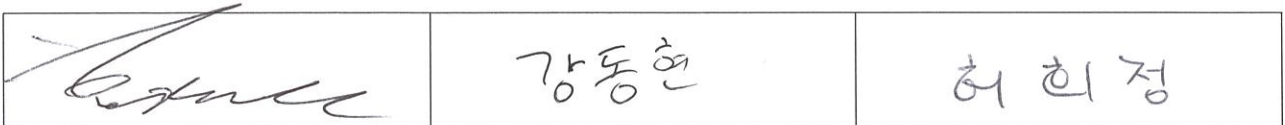 강동현 허희정